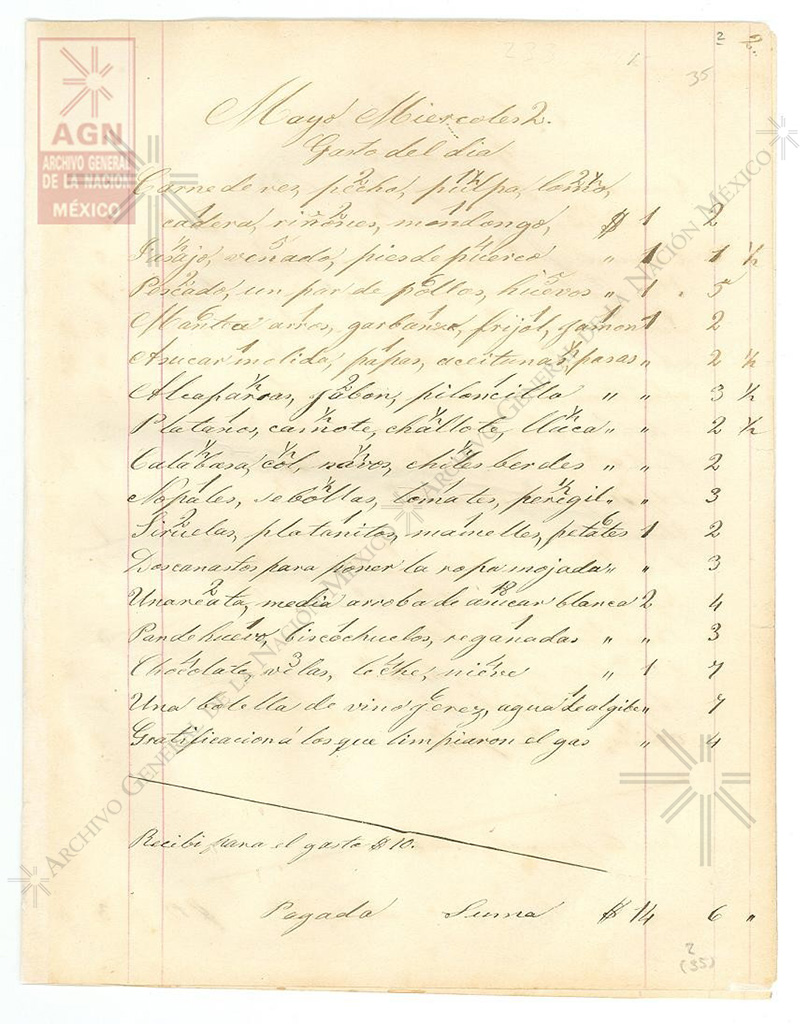 2 2
233
35
AGN
ARCHIVO GENERAL
DE LA NACIÓN
MÉXICO
Mayo Miercoles 2.
Gasto del dia
Carne de res, pecho, pulpa, lomo,
cadera, riñones, mondongo, $ 1 2
Tasajo, venado, pies de puerco " 1 1 ½
Pescado, un par de pollos, huevos " 1 . 5
Manteca arros, garbanzo, frijol, jamon 1 2
Asucar molida, papas, aceitunas, pasas " 2 ½
Alcaparras, jabon, piloncillo " " 3 ½
Platanos, camote, challote, lluca " " 2 ½
Calabasa, col, navos, chiles berdes " " 2
Nopales, sebollas, tomates, peregil " " 3
Siruelas, platanitos, mamelles, petates 1 2
Dos canastos para poner la ropa mojada " " 3
Una reata, media arroba de asucar blanca 2 4
Pan de huevo, biscochuelos, reganadas " " 3
Chocolate, velas, leche, nieve " 1 7
Una botella de vino Jerez, agua de algibe " 7
Gratificacion á los que limpiaron el gas " 4
Recibi para el gasto $ 10.
Pagada Suma $ 14 6 "
2
(35)
ARCHIVO GENERAL DE LA NACIÓN MÉXICO
ARCHIVO GENERAL DE LA NACIÓN MÉXICO